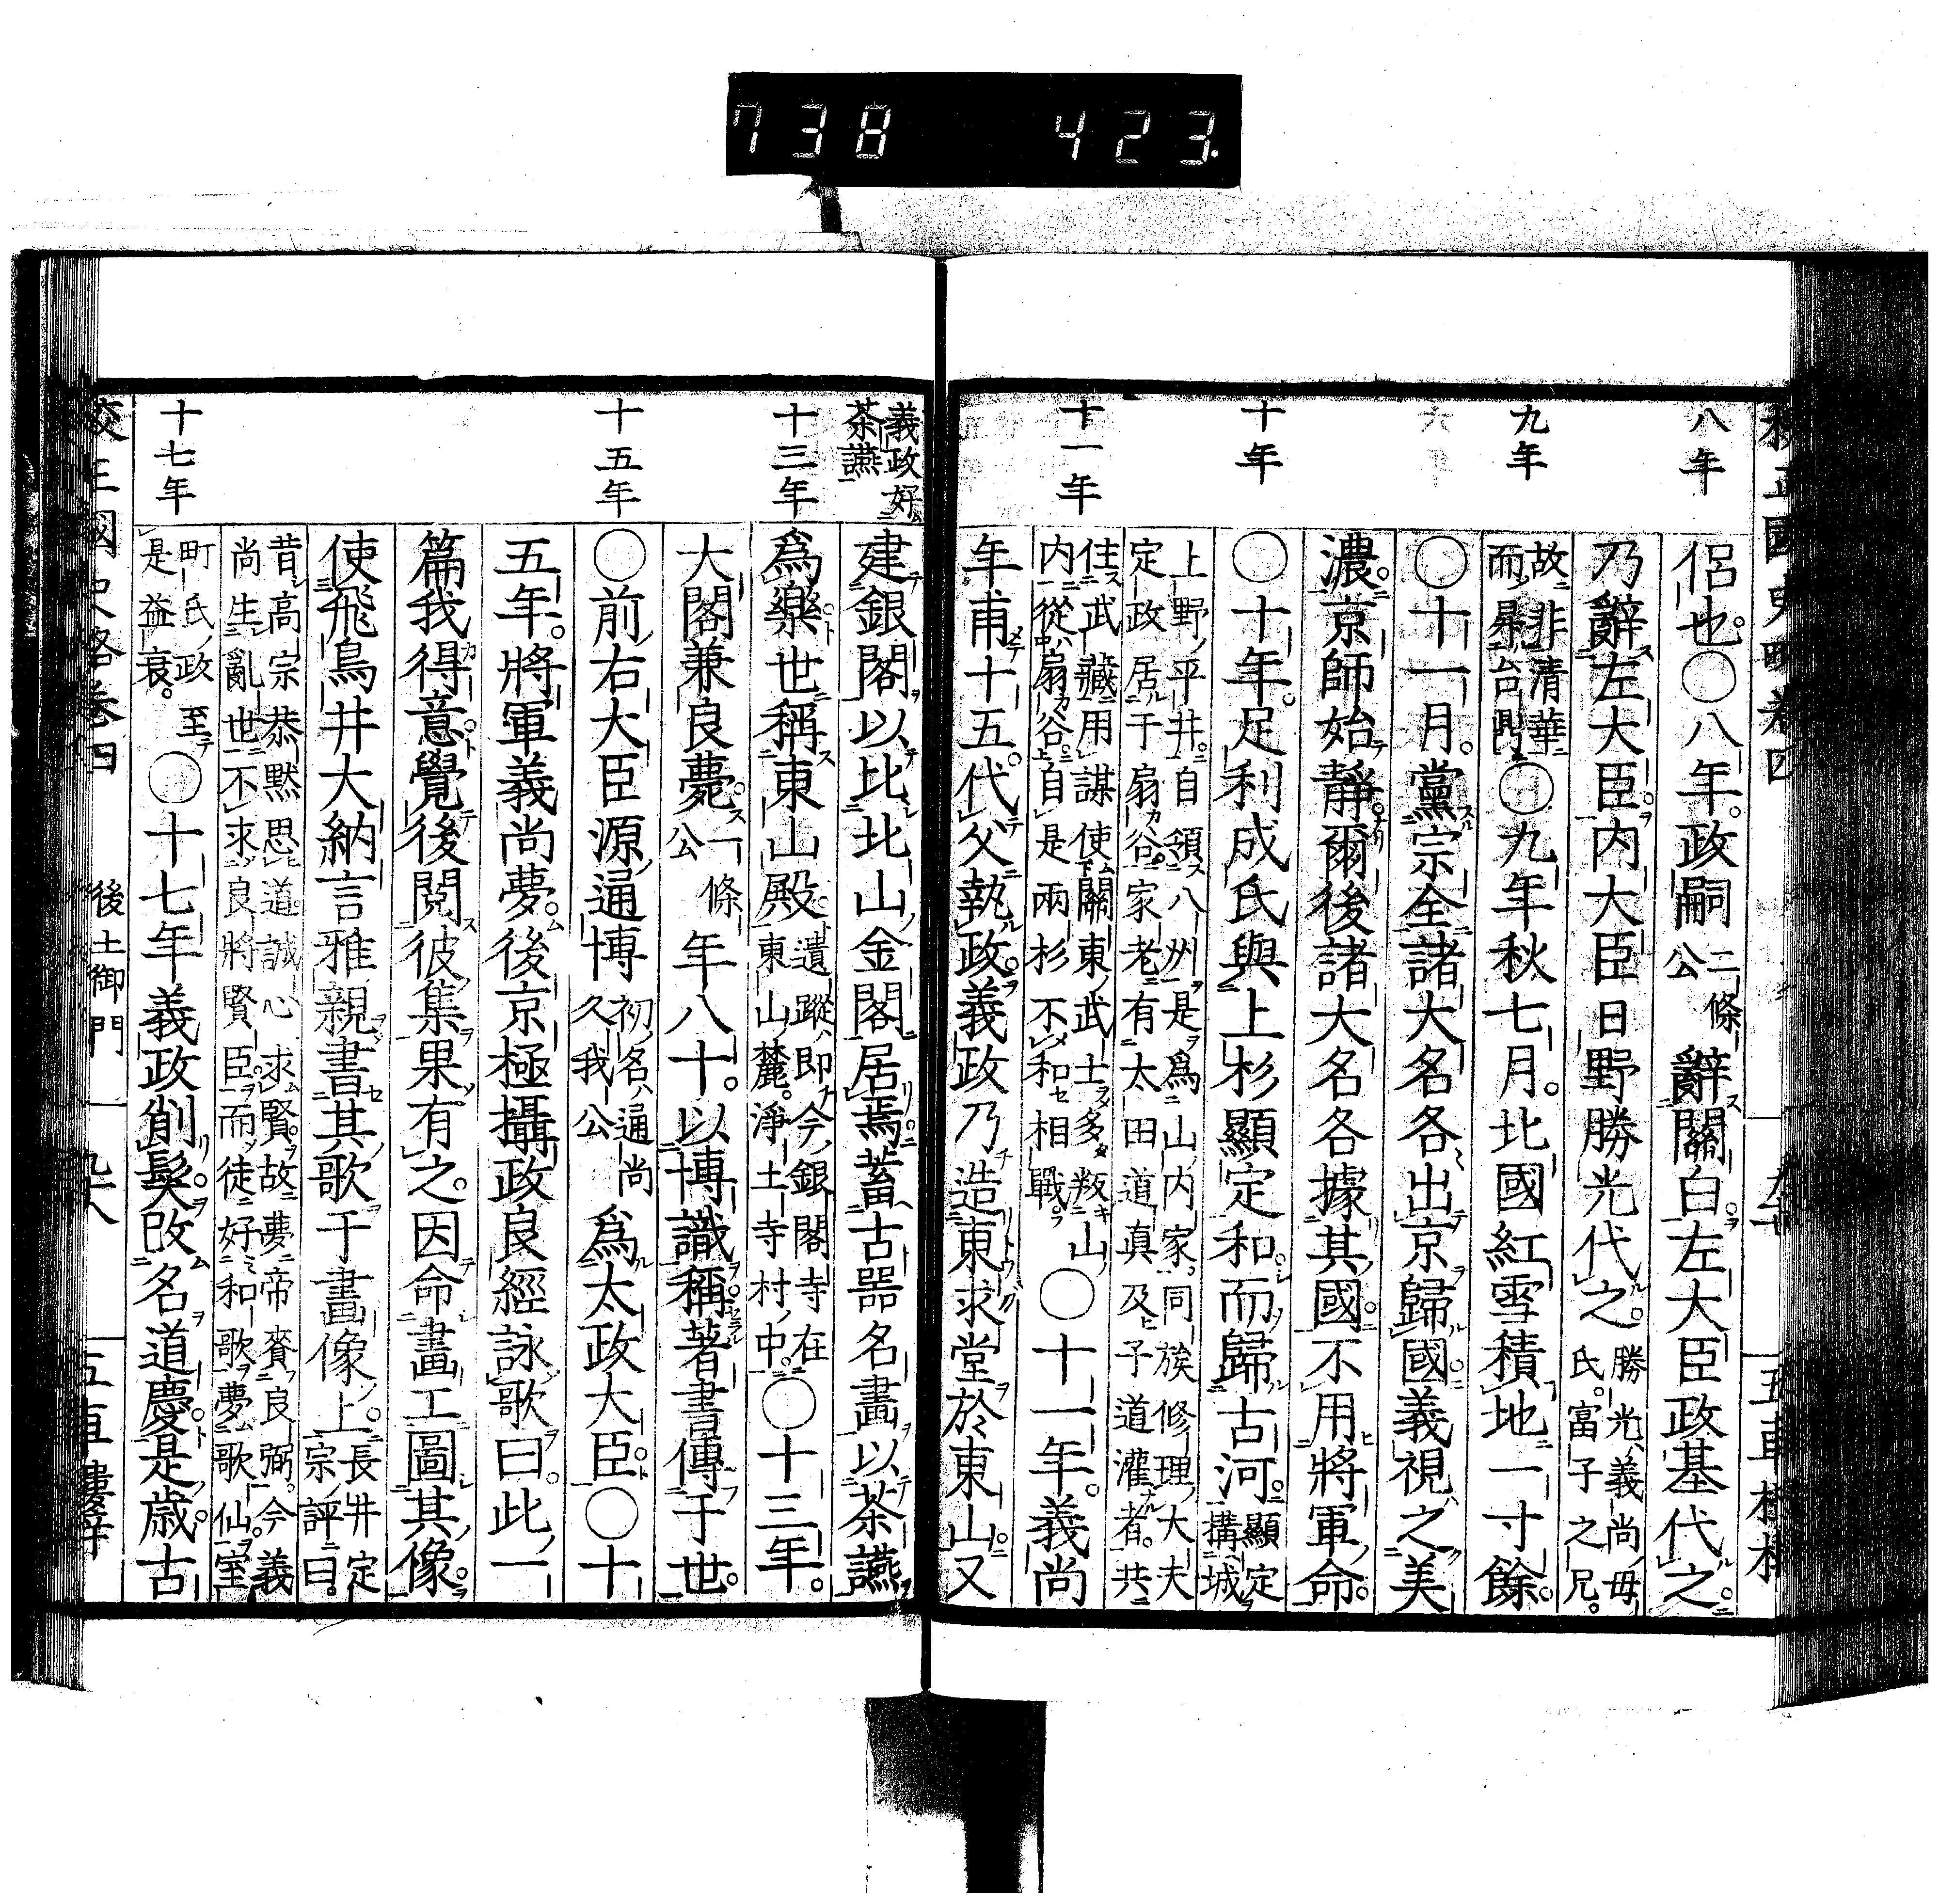 738 423.
八年
九年
十年
十一年
侶也。〇八年。政嗣二條公辭關白左大臣政基代之。
乃辭左大臣。内大臣日野勝光代之。勝光、義尚毋
氏。富子之兄。
故非清華
而昇台鼎〇九年秋七月。北國紅雪積地一寸餘。
〇十一月。黨宗全諸大名各出京歸國。義視之美
濃。京師始靜。爾後諸大名各據其國。不用將軍命。
〇十年。足利成氏與上杉顯定和。而歸古河。顯定
構城
上野平井。自領八州。是爲山内家。同族修理大夫
定政居于扇谷。家老有太田道真及子道灌者。共
住武藏。用謀使關東武士多叛山
内從扇谷。自是兩杉不和相戰。〇十一年。義尚
年甫十五。代父執政。義政乃造東求堂於東山。又
義政好
茶讌
十三年
十五年
十七年
建銀閣。以比北山金閣。居焉蓄古器名畫。以茶讌
爲樂。世稱東山殿。遺蹤即今銀閣寺在
東山麓。淨土寺村中。〇十三年。
大閤兼良薨。一條公年八十。以博識稱。著書傳于世。
〇前右大臣源通博初名通尚
久我公爲太政大臣。〇十
五年。將軍義尚夢。後京極攝政良經詠歌曰。此一
篇我得意。覺後閲彼集。果有之。因命畫工圖其像。
使飛鳥井大納言雅親書其歌于畫像上。長井定
宗評曰。
昔高宗恭默思道。誠心求賢。故夢帝賚良弼。今義
尚生亂世。不求良將賢臣。而徒好和歌。夢歌仙。室
町氏政至
是益衰。〇十七年義政削髮。改名道慶。是歲古
後土御門